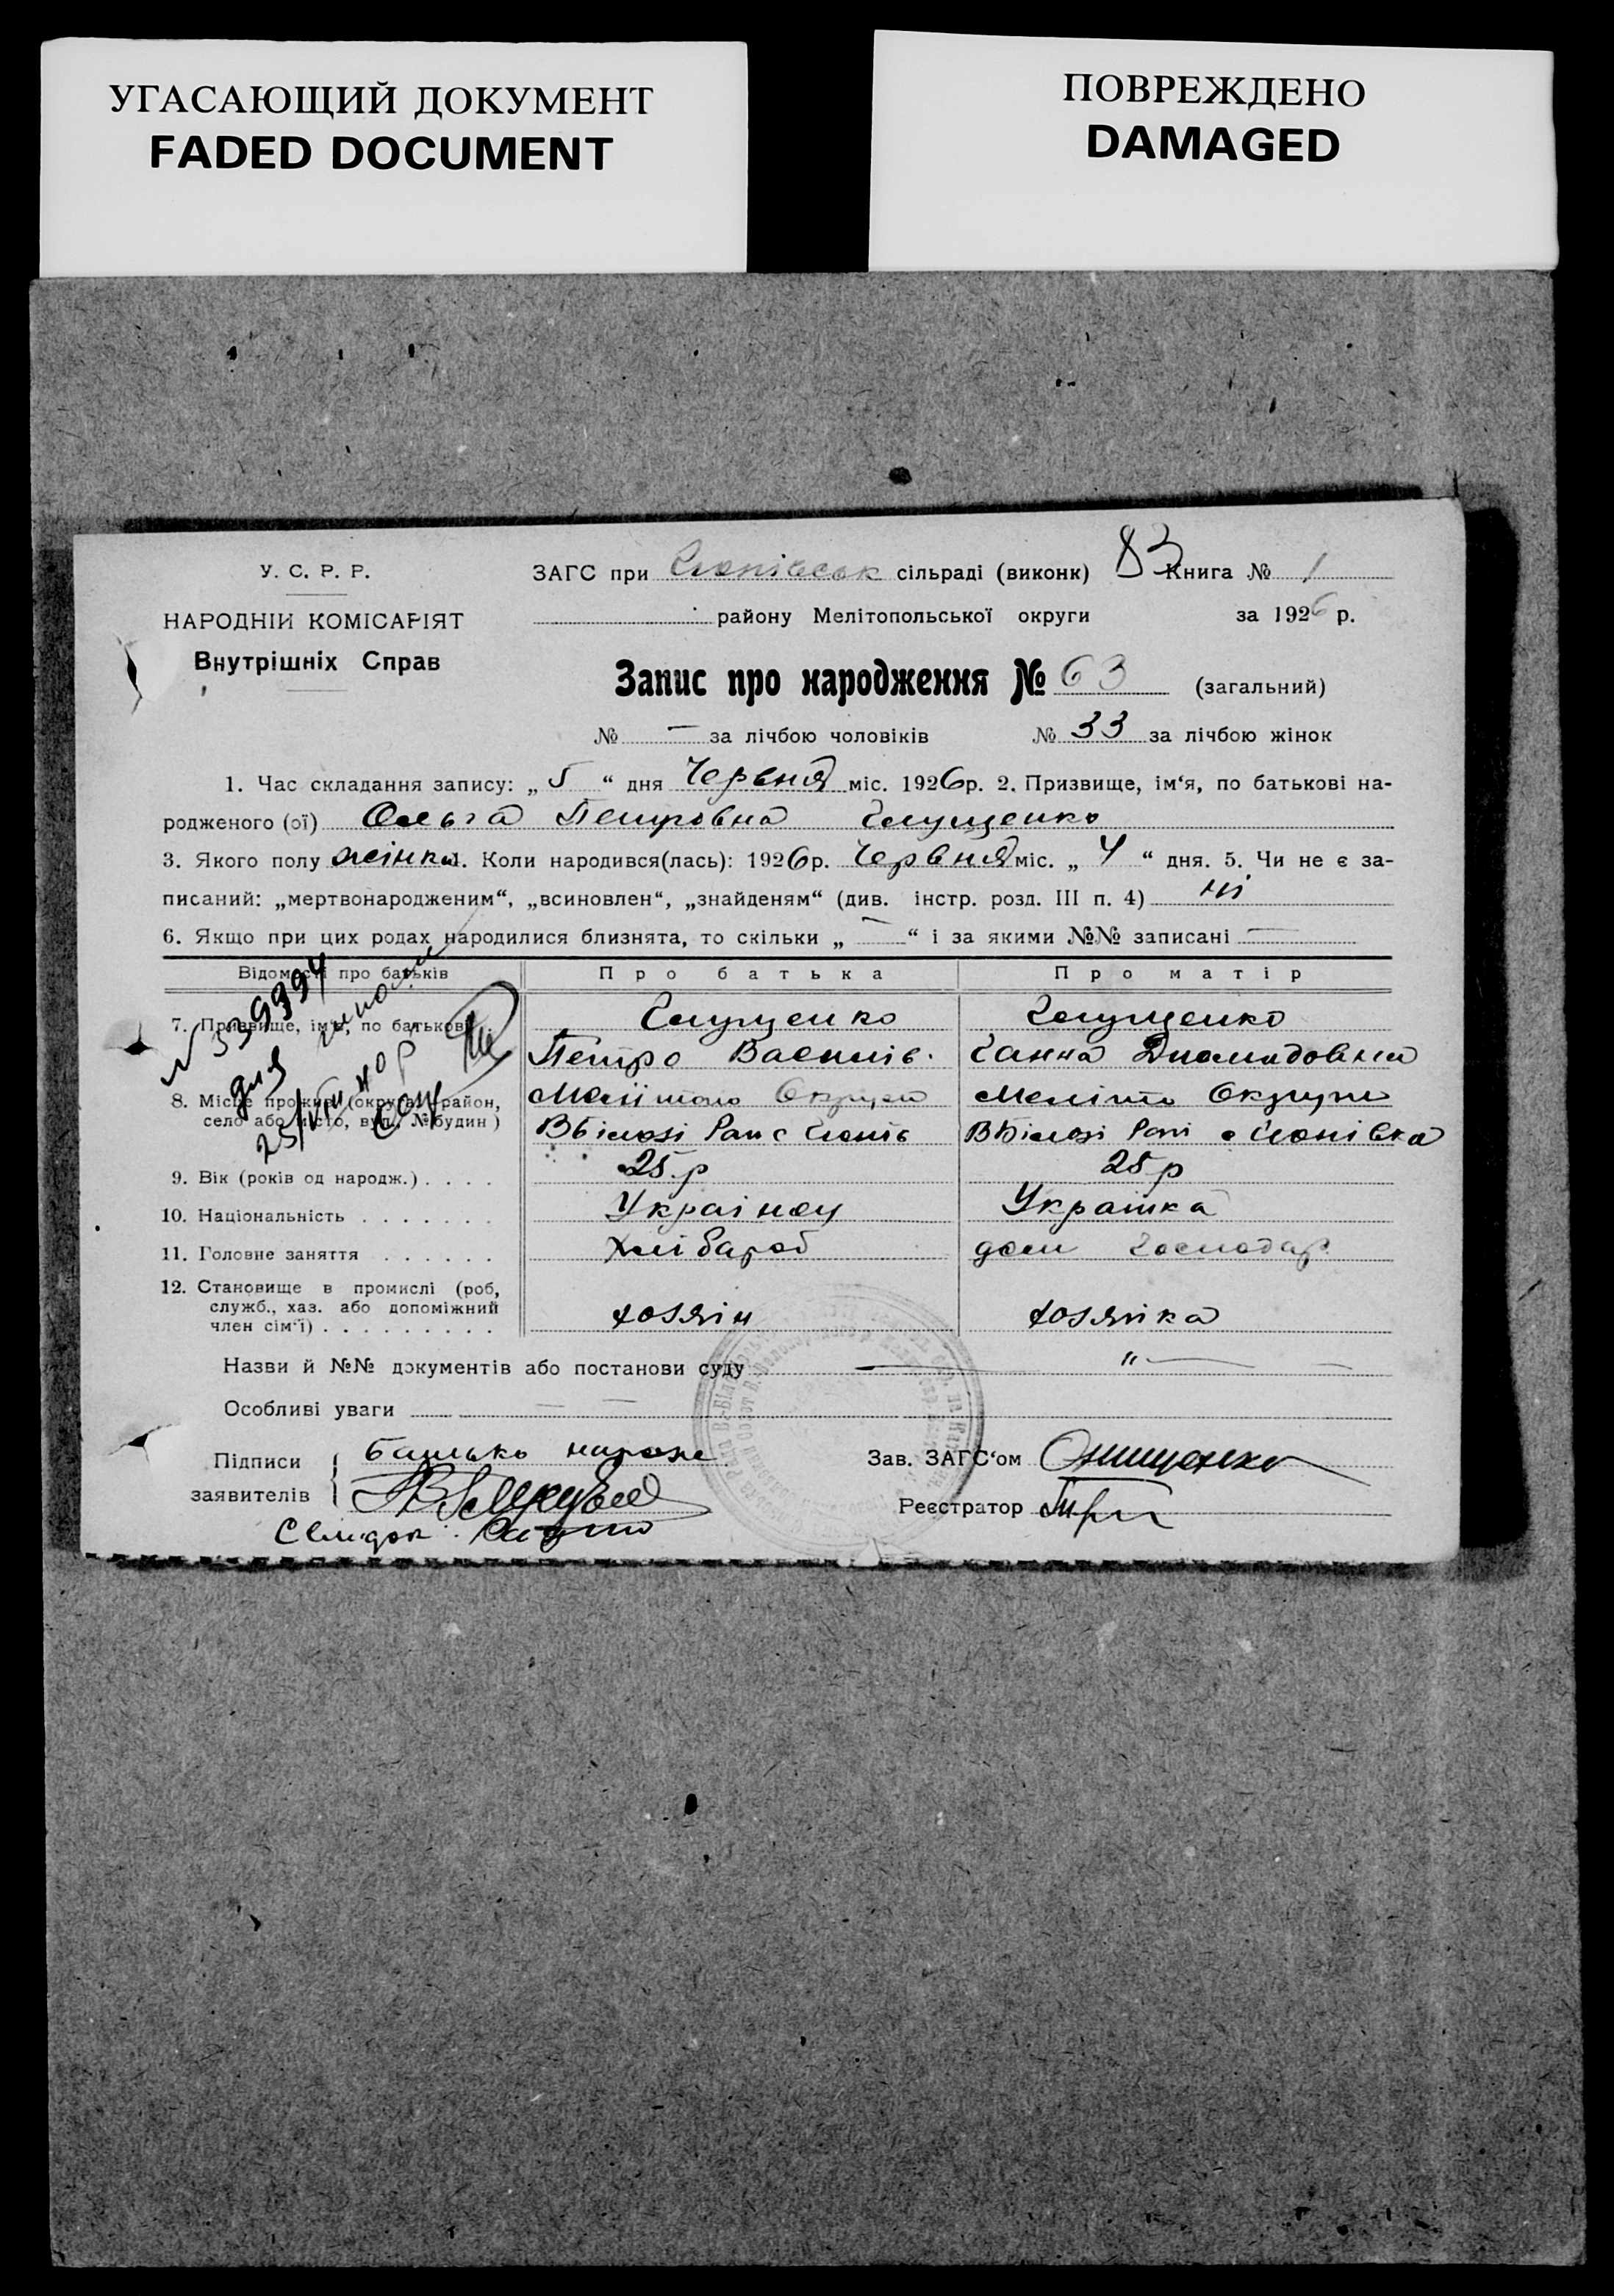 УГАСАЮЩИЙ ДОКУМЕНТ
FADED DOCUMENT
ПОВРЕЖДЕНО
DAMAGED
У. С. Р. Р.
НАРОДНІЙ КОМІСАРІЯТ
Внутрішніх Справ
ЗАГС при сільраді (виконк) 83 Книга № 1
району Мелітопольської округи за 1926 р.
Запис про народження № 63 (загальний)
№ — за лічбою чоловіків № 33 за лічбою жінок
1. Час складання запису: „ 5 “ дня Червня міс. 1926р. 2. Призвище, ім‘я, по батькові на-
родженого (ої) Ольга Петровна Глущенко
3. Якого полу жінка 4. Коли народився(лась): 1926р. Червня міс. „ 4 “ дня. 5. Чи не є за-
писаний: „мертвонародженим“, „всиновлен“, „знайденям“ (див. інстр. розд. III п. 4) ні
6. Якщо при цих родах народилися близнята, то скільки „ — “ і за якими №№ записані —
Відомості про батьків Про батька Про матір
7. Призвище, ім‘я, по батькові Глущенко Глущенко
Петро Василів. Ганна Диомидовна
8. Місце прожив. (округа, район, Меліто Округи
село або місто, вул., № будин)
9. Вік (років од народж.) . . . . 25 р 25 р
10. Національність . . . . . . . Українец Українка
11. Головне заняття . . . . . . Хлібароб дом господар
12. Становище в промислі (роб,
служб., хаз. або допоміжний
член сім‘ї) . . . . . . . . . хозяін хозяйка
Назви й №№ документів або постанови суду — " —
Особливі уваги — —
Підписи батько
заявителів
Зав. ЗАГС‘ом Онищенко
Реєстратор
Свидок
N 339994